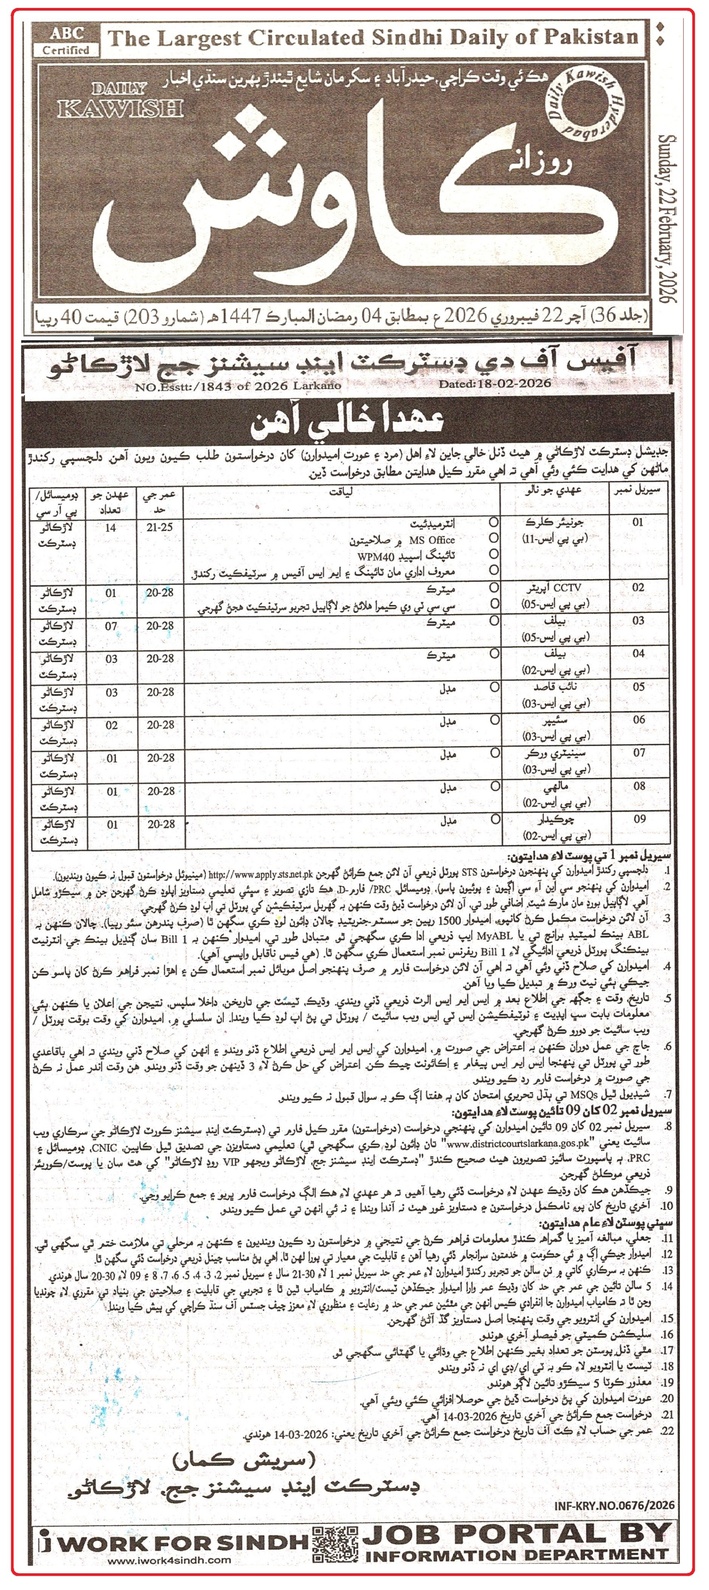 ABC
Certified
The Largest Circulated Sindhi Daily of Pakistan
هڪ ئي وقت ڪراچي، حيدرآباد ۽ سکر مان شايع ٿيندڙ بهرين سنڌي اخبار
DAILY
KAWISH
Daily Kawish Hyderabad
روزانه
ڪاوش
Sunday, 22 February, 2026
(جلد 36) آچر 22 فيبروري 2026ع بمطابق 04 رمضان المبارڪ 1447هه (شمارو 203) قيمت 40 رپيا
آفيس آف دي ڊسٽرڪٽ اينڊ سيشنز جج لاڙڪاڻو
NO.Esstt:/1843 of 2026 Larkano Dated:18-02-2026
عهدا خالي آهن
جڊيشل ڊسٽرڪٽ لاڙڪاڻي ۾ هيٺ ڏنل خالي جاين لاءِ اهل (مرد ۽ عورت اميدوارن) کان درخواستون طلب ڪيون ويون آهن. دلچسپي رکندڙ
ماڻهن کي هدايت ڪئي وئي آهي ته اهي مقرر ڪيل هدايتن مطابق درخواست ڏين.
سيريل نمبر | عهدي جو نالو | لياقت | عمر جي حد | عهدن جو تعداد | ڊوميسائل/ پي آر سي
01 | جونيئر ڪلرڪ (بي پي ايس-11) | انٽرميڊئيٽ | 21-25 | 14 | لاڙڪاڻو ڊسٽرڪٽ
MS Office ۾ صلاحيتون
ٽائپنگ اسپيڊ WPM40
معروف اداري مان ٽائپنگ ۽ ايم ايس آفيس ۾ سرٽيفڪيٽ رکندڙ.
02 | CCTV آپريٽر (بي پي ايس-05) | ميٽرڪ | 20-28 | 01 | لاڙڪاڻو ڊسٽرڪٽ
سي سي ٽي وي ڪيمرا هلائڻ جو لاڳاپيل تجربو سرٽيفڪيٽ هجڻ گهرجي.
03 | بيلف (بي پي ايس-05) | ميٽرڪ | 20-28 | 07 | لاڙڪاڻو ڊسٽرڪٽ
04 | بيلف (بي پي ايس-02) | ميٽرڪ | 20-28 | 03 | لاڙڪاڻو ڊسٽرڪٽ
05 | نائب قاصد (بي پي ايس-03) | مڊل | 20-28 | 03 | لاڙڪاڻو ڊسٽرڪٽ
06 | سئيپر (بي پي ايس-03) | مڊل | 20-28 | 02 | لاڙڪاڻو ڊسٽرڪٽ
07 | سينيٽري ورڪر (بي پي ايس-03) | مڊل | 20-28 | 01 | لاڙڪاڻو ڊسٽرڪٽ
08 | مالهي (بي پي ايس-02) | مڊل | 20-28 | 01 | لاڙڪاڻو ڊسٽرڪٽ
09 | چوڪيدار (بي پي ايس-02) | مڊل | 20-28 | 01 | لاڙڪاڻو ڊسٽرڪٽ
سيريل نمبر 1 تي پوسٽ لاءِ هدايتون:
1. دلچسپي رکندڙ اميدوارن کي پنهنجون درخواستون STS پورٽل ذريعي آن لائن جمع ڪرائڻ گهرجن http://www.apply.sts.net.pk (مينيوئل درخواستون قبول نه ڪيون وينديون).
2. اميدوارن کي پنهنجو سي اين آءِ سي (اڳيون ۽ پوئيون پاسو)، ڊوميسائل، PRC/ فارم-D، هڪ تازي تصوير ۽ سڀئي تعليمي دستاويز اپلوڊ ڪرڻ گهرجن جن ۾ سيڪڙو شامل
آهي. لاڳاپيل بورڊ مان مارڪ شيٽ. اضافي طور تي، آن لائن درخواست ڏيڻ وقت ڪنهن به گهربل سرٽيفڪيشن کي پورٽل تي اپ لوڊ ڪرڻ گهرجي.
3. آن لائن درخواست مڪمل ڪرڻ کانپوءِ، اميدوار 1500 رپين جو سسٽم-جنريٽيڊ چالان ڊائون لوڊ ڪري سگهن ٿا (صرف پندرهن سئو رپيا). چالان ڪنهن به
ABL بينڪ لميٽيڊ برانچ تي يا MyABL ايپ ذريعي ادا ڪري سگهجي ٿو. متبادل طور تي، اميدوار ڪنهن به 1 Bill سان گنڍيل بينڪ جي انٽرنيٽ
بينڪنگ پورٽل ذريعي ادائيگي لاءِ 1 Bill ريفرنس نمبر استعمال ڪري سگهن ٿا. (هي فيس ناقابل واپسي آهي).
4. اميدوارن کي صلاح ڏني وئي آهي ته اهي آن لائن درخواست فارم ۾ صرف پنهنجو اصل موبائل نمبر استعمال ڪن ۽ اهڙا نمبر فراهم ڪرڻ کان پاسو ڪن
جيڪي ٻئي نيٽ ورڪ ۾ تبديل ڪيا ويا آهن.
5. تاريخ، وقت ۽ جڳهه جي اطلاع بعد ۾ ايس ايم ايس الرٽ ذريعي ڏني ويندي. وڌيڪ، ٽيسٽ جي تاريخن، داخلا سلپس، نتيجن جي اعلان يا ڪنهن ٻئي
معلومات بابت سڀ اپڊيٽ ۽ نوٽيفڪيشن ايس ٽي ايس ويب سائيٽ / پورٽل تي پڻ اپ لوڊ ڪيا ويندا. ان سلسلي ۾، اميدوارن کي وقت بوقت پورٽل /
ويب سائيٽ جو دورو ڪرڻ گهرجي.
6. جاچ جي عمل دوران ڪنهن به اعتراض جي صورت ۾، اميدوارن کي ايس ايم ايس ذريعي اطلاع ڏنو ويندو ۽ انهن کي صلاح ڏني ويندي ته اهي باقاعدي
طور تي پورٽل تي پنهنجا ايس ايم ايس پيغام ۽ اڪائونٽ چيڪ ڪن. اعتراض کي حل ڪرڻ لاءِ 3 ڏينهن جو وقت ڏنو ويندو. هن وقت اندر عمل نه ڪرڻ
جي صورت ۾ درخواست فارم رد ڪيو ويندو.
7. شيڊيول ٿيل MSQs تي ٻڌل تحريري امتحان کان به هفتا اڳ ڪو به سوال قبول نه ڪيو ويندو.
سيريل نمبر 02 کان 09 تائين پوسٽ لاءِ هدايتون:
8. سيريل نمبر 02 کان 09 تائين اميدوارن کي پنهنجي درخواست (درخواستون) مقرر ڪيل فارم تي (ڊسٽرڪٽ اينڊ سيشنز ڪورٽ لاڙڪاڻو جي سرڪاري ويب
سائيٽ يعني "www.districtcourtslarkana.gos.pk" تان ڊائون لوڊ ڪري سگهجي ٿي) تعليمي دستاويزن جي تصديق ٿيل ڪاپين، CNIC، ڊوميسائل ۽
PRC، ٻه پاسپورٽ سائيز تصويرون هيٺ صحيح ڪندڙ "ڊسٽرڪٽ اينڊ سيشنز جج، لاڙڪاڻو ويجهو VIP روڊ لاڙڪاڻو" کي هٿ سان يا پوسٽ/ڪوريئر
ذريعي موڪلڻ گهرجن.
9. جيڪڏهن هڪ کان وڌيڪ عهدن لاءِ درخواست ڏئي رهيا آهيو، ته هر عهدي لاءِ هڪ الڳ درخواست فارم ڀريو ۽ جمع ڪرايو وڃي.
10. آخري تاريخ کان پوءِ نامڪمل درخواستون ۽ دستاويز غور هيٺ نه آندا ويندا ۽ نه ئي انهن تي عمل ڪيو ويندو.
سڀني پوسٽن لاءِ عام هدايتون:
11. جعلي، مبالغه آميز يا گمراهه ڪندڙ معلومات فراهم ڪرڻ جي نتيجي ۾ درخواستون رد ڪيون وينديون ۽ ڪنهن به مرحلي تي ملازمت ختم ٿي سگهجي ٿي.
12. اميدوار جيڪي اڳ ۾ ئي حڪومت ۾ خدمتون سرانجام ڏئي رهيا آهن ۽ قابليت جي معيار تي پورا لهن ٿا، اهي پڻ مناسب چينل ذريعي درخواست ڏئي سگهن ٿا.
13. ڪنهن به سرڪاري کاتي ۾ ٽن سالن جو تجربو رکندڙ اميدوارن لاءِ عمر جي حد سيريل نمبر 1 لاءِ 30-21 سال ۽ سيريل نمبر 2، 3، 4، 5، 6، 7، 8 ۽ 09 لاءِ 30-20 سال هوندي.
14. 5 سالن تائين جي عمر جي حد کان وڌيڪ عمر وارا اميدوار جيڪڏهن ٽيسٽ/انٽرويو ۾ ڪامياب ٿين ٿا ۽ تجربي جي قابليت ۽ صلاحيتن جي بنياد تي مقرري لاءِ چونڊيا
وڃن ٿا ته ڪامياب اميدوارن جا انفرادي ڪيس انهن جي مٿئين عمر جي حد ۾ رعايت ۽ منظوري لاءِ معزز چيف جسٽس آف سنڌ ڪراچي کي پيش ڪيا ويندا.
15. اميدوارن کي انٽرويو جي وقت پنهنجا اصل دستاويز گڏ آڻڻ گهرجن.
16. سليڪشن ڪميٽي جو فيصلو آخري هوندو.
17. مٿي ڏنل پوسٽن جو تعداد بغير ڪنهن اطلاع جي وڌائي يا گهٽائي سگهجي ٿو.
18. ٽيسٽ يا انٽرويو لاءِ ڪو به ٽي اي/ڊي اي نه ڏنو ويندو.
19. معذور ڪوٽا 5 سيڪڙو تائين لاڳو هوندو.
20. عورت اميدوارن کي پڻ درخواست ڏيڻ جي حوصلا افزائي ڪئي ويئي آهي.
21. درخواست جمع ڪرائڻ جي آخري تاريخ 2026-03-14 آهي.
22. عمر جي حساب لاءِ ڪٽ آف تاريخ درخواست جمع ڪرائڻ جي آخري تاريخ يعني: 2026-03-14 هوندي.
(سريش ڪمار)
ڊسٽرڪٽ اينڊ سيشنز جج، لاڙڪاڻو.
INF-KRY.NO.0676/2026
i WORK FOR SINDH
www.iwork4sindh.com
JOB PORTAL BY
INFORMATION DEPARTMENT